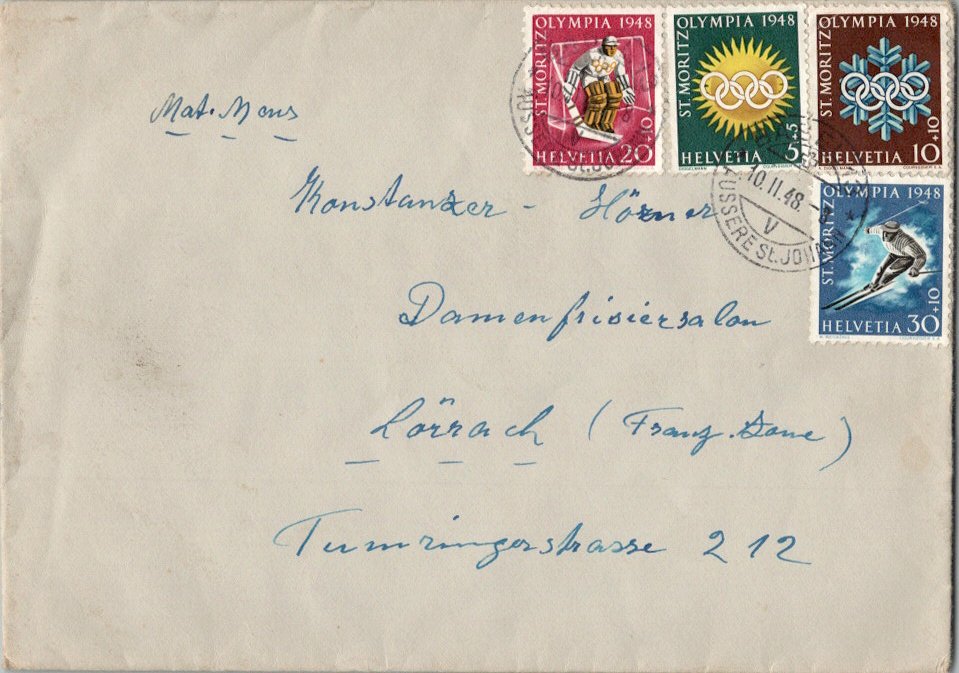 ST. MORITZ OLYMPIA 1948
HELVETIA 20+10
ST. MORITZ OLYMPIA 1948
HELVETIA 5+5
ST. MORITZ OLYMPIA 1948
HELVETIA 10+10
10.II.48.
V
AUSSERE St. JOHANN
ST. MORITZ OLYMPIA 1948
HELVETIA 30+10
Konstanzer - Hörner
Damenfrisiersalon
Lörrach (Franz. Zone)
Tumringerstrasse 212